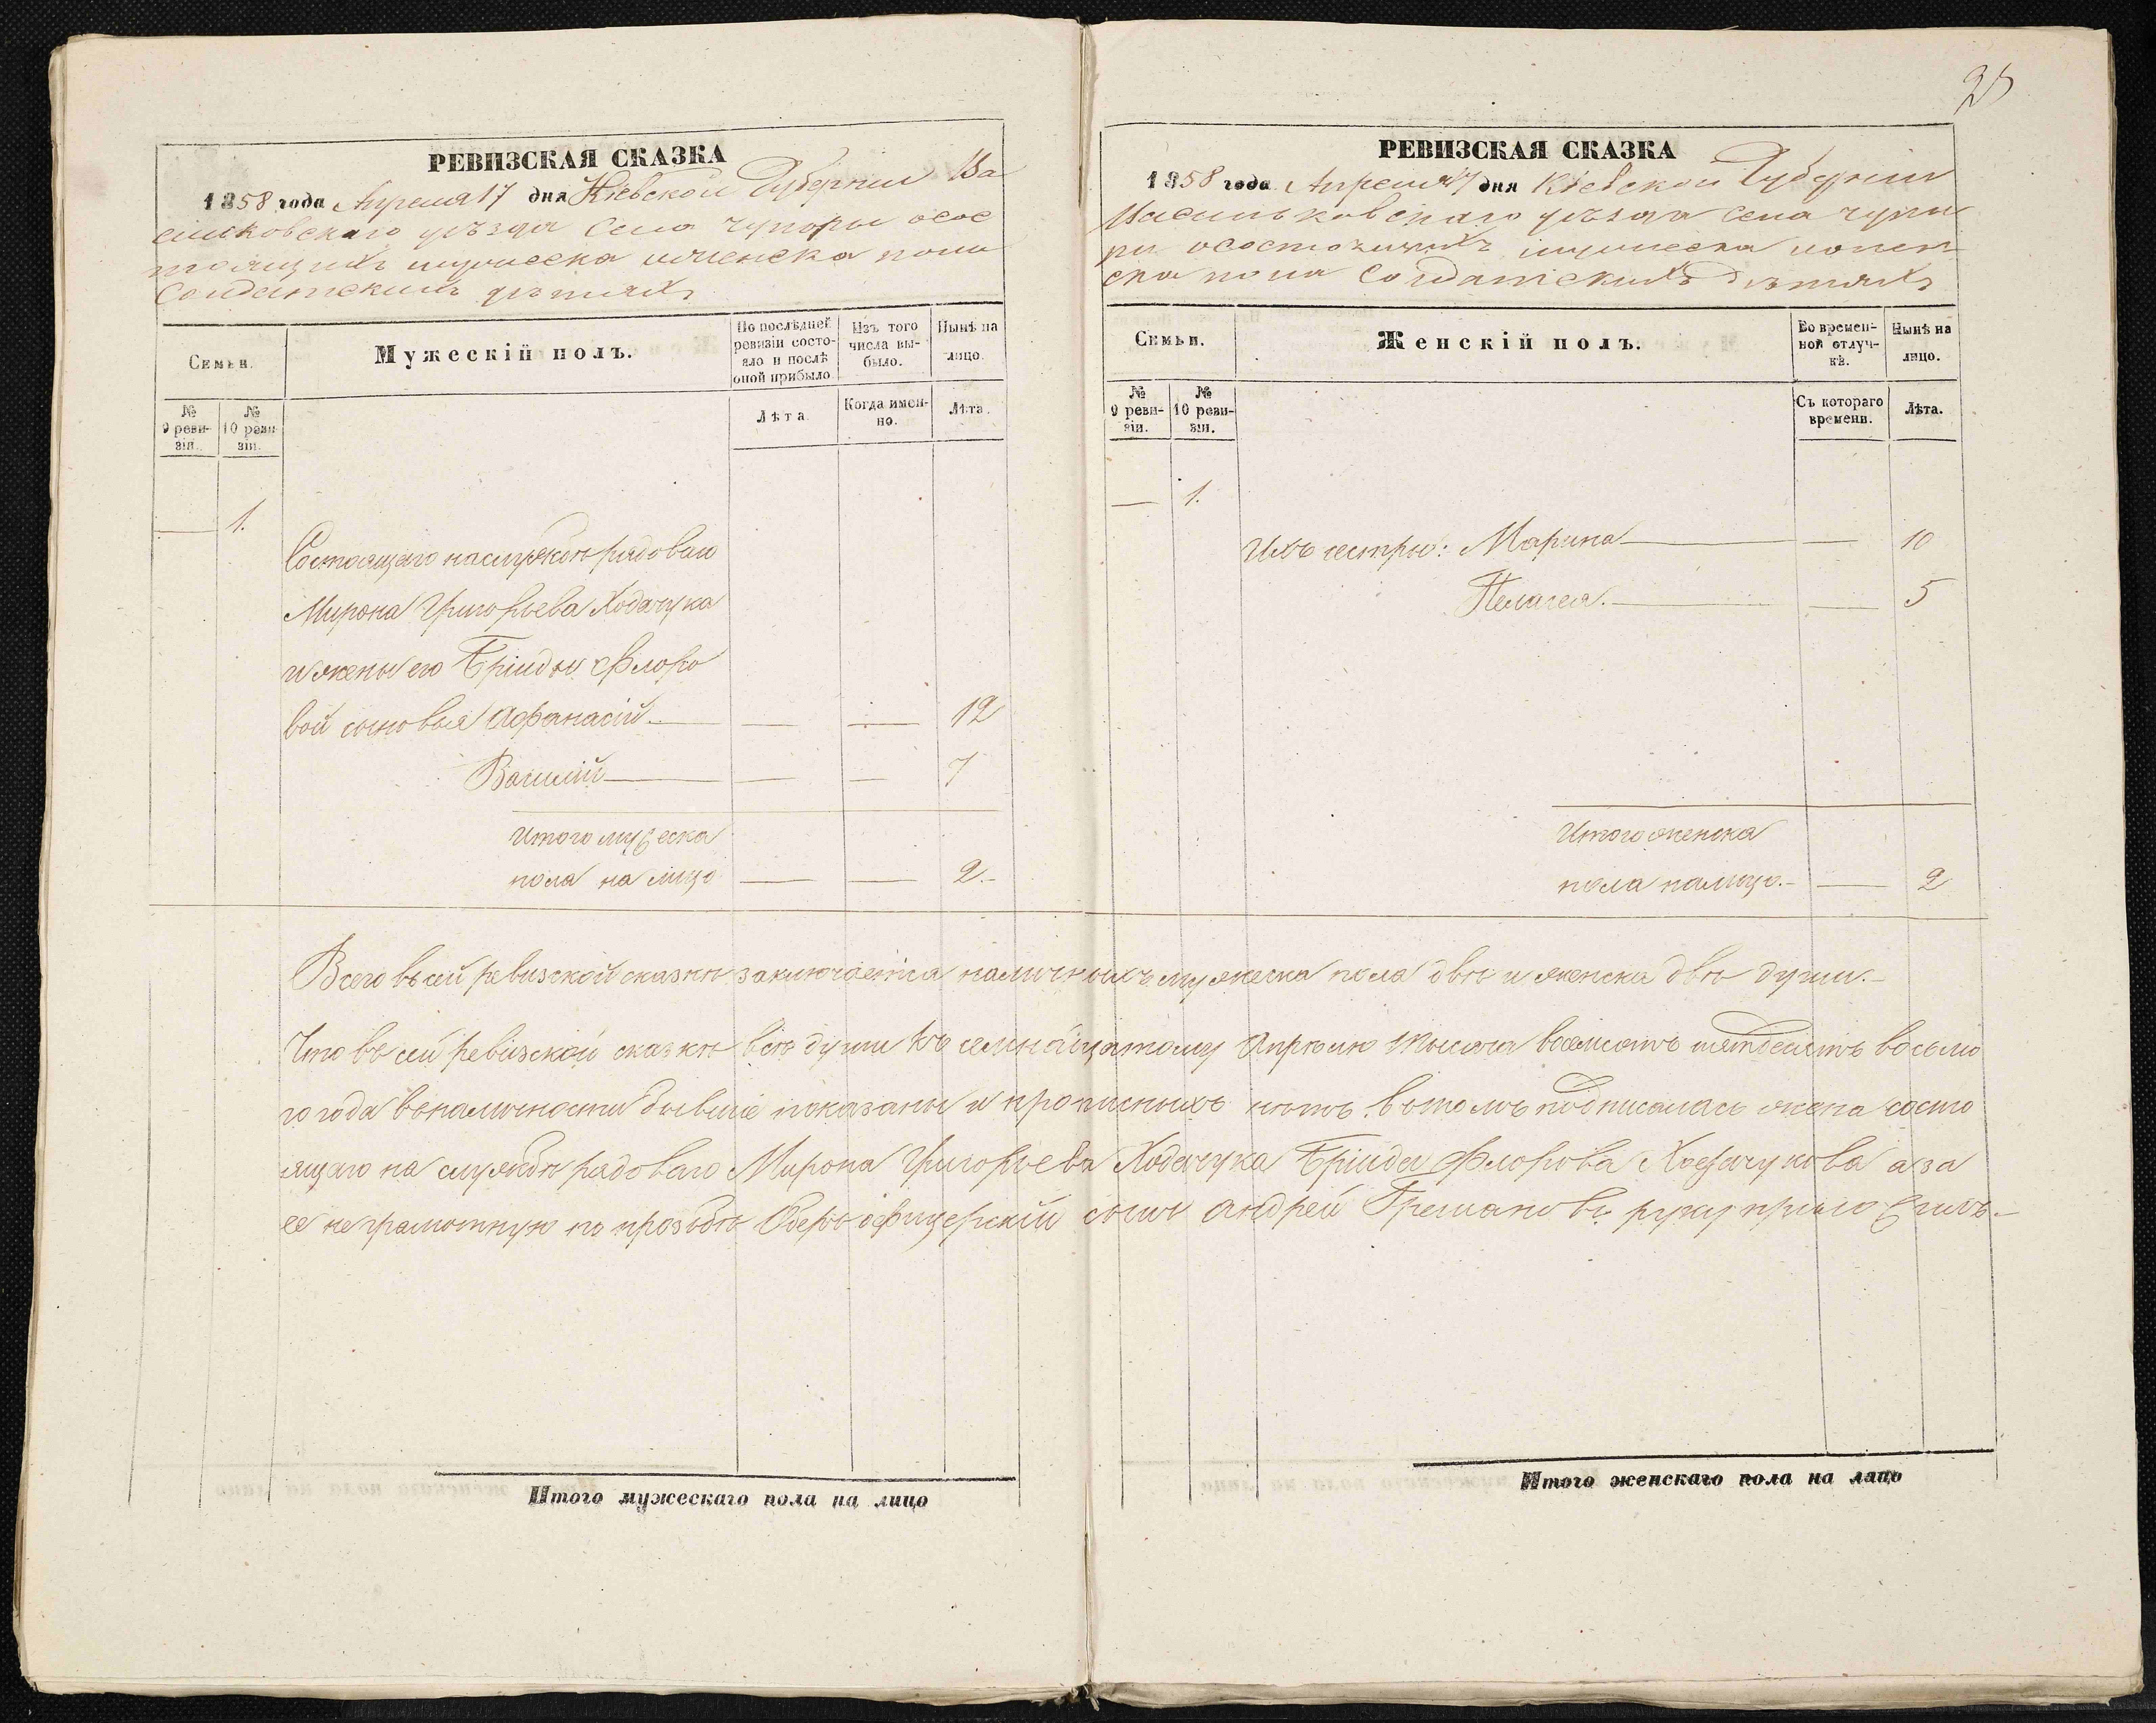 РЕВИЗСКАЯ СКАЗКА
1858 года Апреля 17 дня Кіевской Губерніи Ва
сильковскаго уѣзда Села Чупыры осос
тоящихъ мужеска иженска пола
Солдатскихъ дѣтяхъ
Семьи.
Мужескій полъ.
По послѣдней ревизіи состояло и послѣ оной прибыло
Изъ того числа выбыло.
Нынѣ на лицо.
№ 9 ревизіи.
№ 10 ревизіи.
Лѣта
Когда именно.
Лѣта.
— 1.
Состоящаго наслужбѣ рядоваго
Мирона Григорьева Ходачука
ижены его Флоро
вой сыновья Афанасій — — — 12
Василій — — — 7
Итого мужеска
пола на лицо — — 2.-
25
РЕВИЗСКАЯ СКАЗКА
1858 года Апреля 17 дня Кіевской Губерніи
Васильковскаго уѣзда Села Чупы
ры осостоящихъ мужеска ижен
ска пола Солдатскихъ дѣтяхъ
Семьи.
Женскій полъ.
Во временной отлучкѣ.
Нынѣ на лицо.
№ 9 ревизіи.
№ 10 ревизіи.
Съ котораго времени.
Лѣта.
— 1.
Ихъ сестры: Марина — — 10
Пелагея. — — 5
Итого женска
пола налицо.- — 2
Всего въ сей ревизской сказкѣ заключается наличныхъ мужеска пола двѣ и женска двѣ души.-
Что въ сей ревизской сказкѣ всѣ души къ семнадцатому Апрѣлю тысяча восемсотъ пятдесятъ восьмо
го года вналичности бывшіе показаны и прописныхъ нѣтъ. вътомъ подписалась жена состо
ящаго на службѣ рядоваго Мирона Григорьева Ходачука Флорова Ходачукова а за
ее неграмотную по прозьбѣ Оберъ офицерскій сынъ Андрей руку приложилъ.-
Итого мужескаго пола на лицо
Итого женскаго пола на лицо